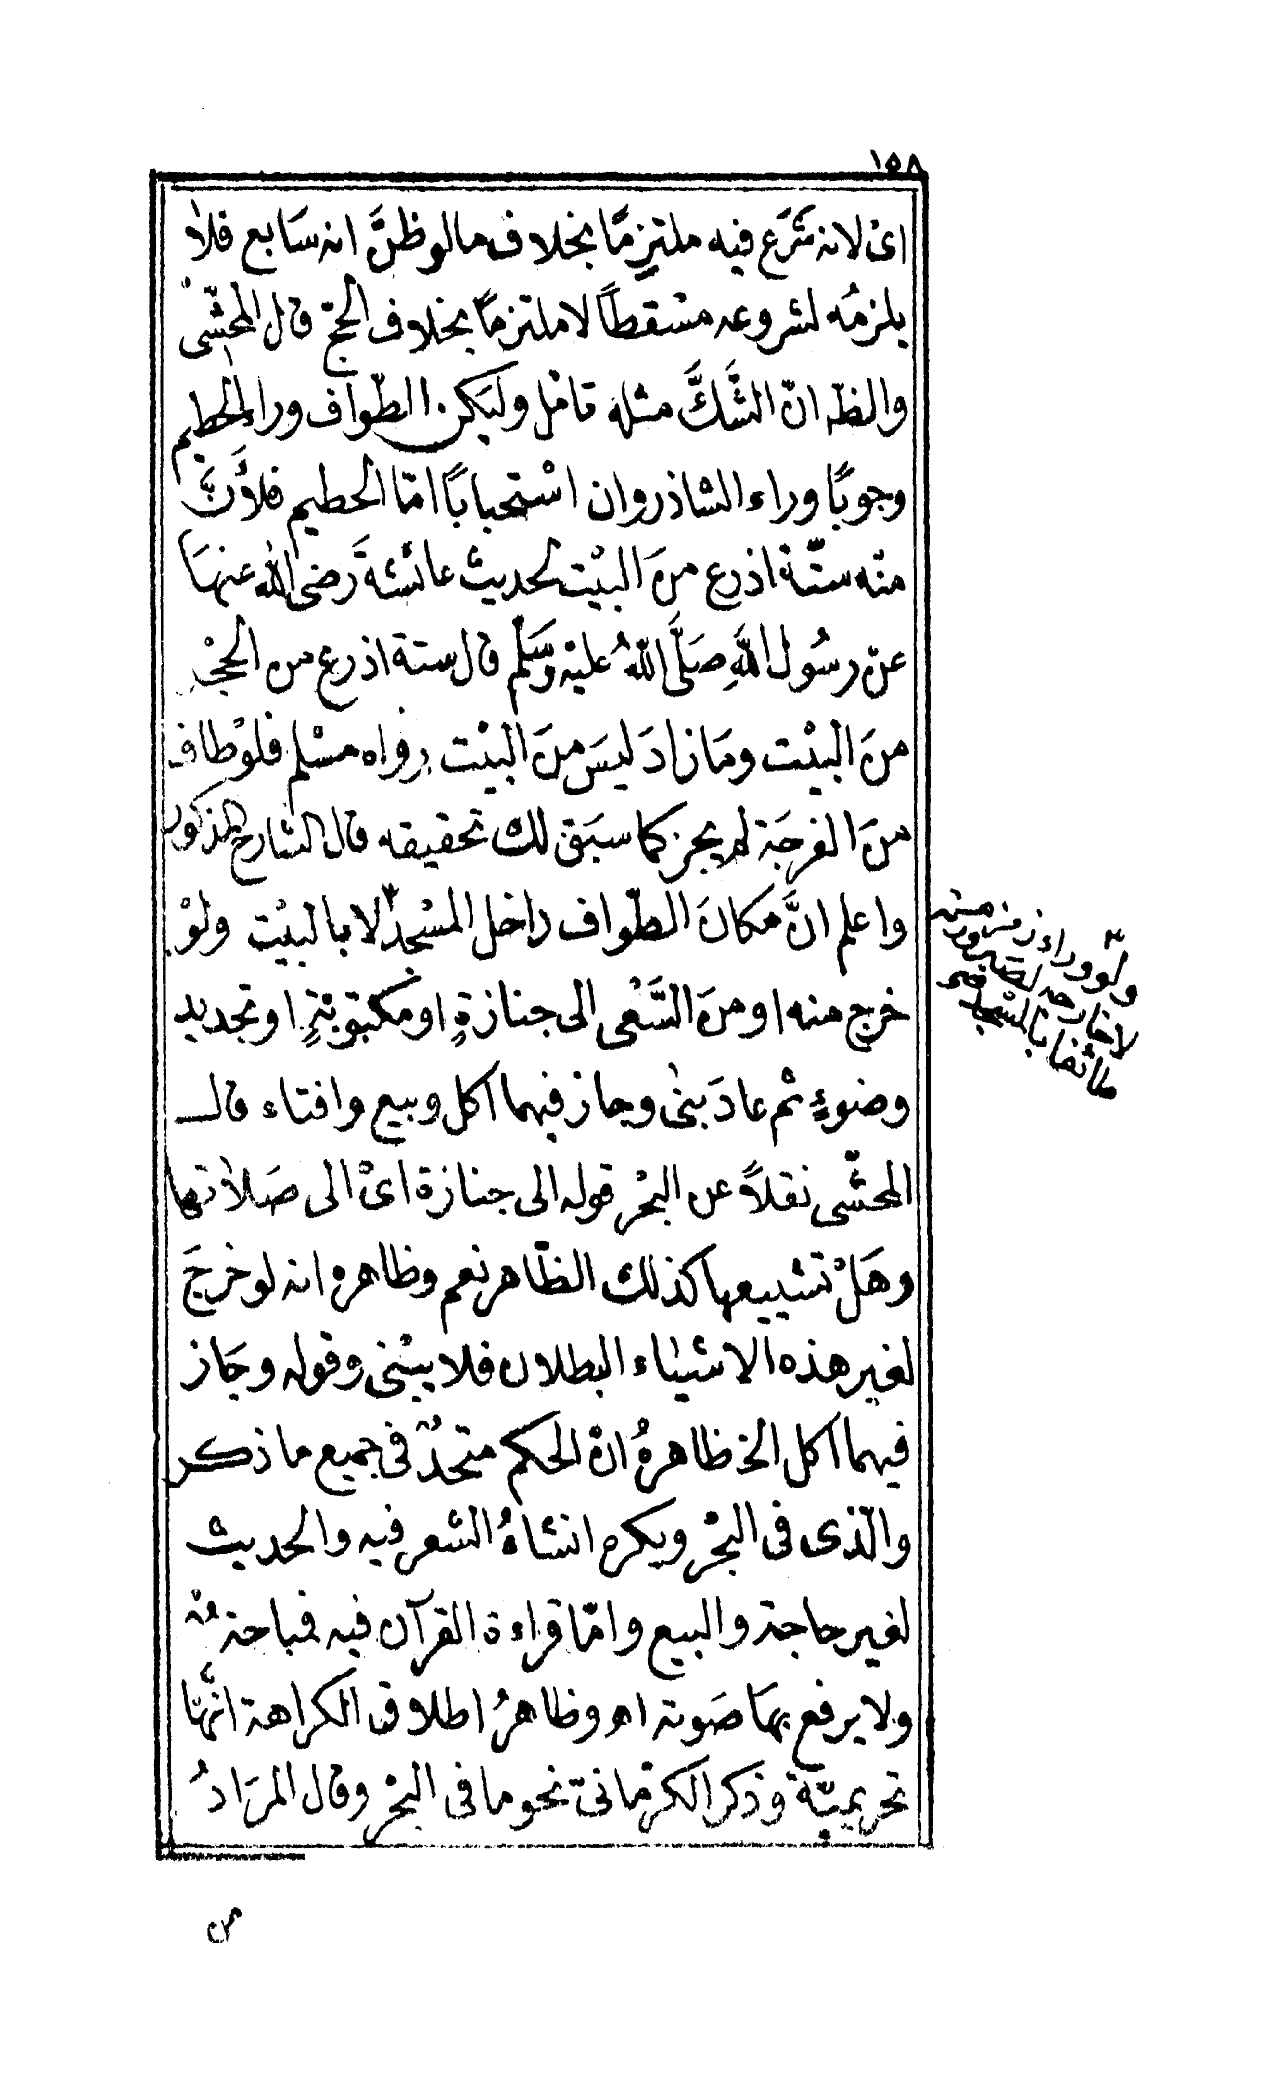 ١٥٨
اىْ لانه شَرَع فيه ملتزِمًا بخلاف مالوظنَّ انه سَابع فلاٰ
يلزمُه لشروعه مسْقطاً لاملتزمًا بخلاف الحجّ قال المحشّىْ
والظّہ انّ الشَّكَّ مثله تامّل وليَكن الطّواف وراءالحطيم
وجوبًا وراء الشاذروان اسْتحبابًا امّا الحطيم فلأَنَّ
منْه ستّة اذرع منَ البيْت لحديث عائشةَ رَضى الله عنهَا
عنْ رسُول اللهِ صَلَّى اللهُ عليْه وَسَلّم قال ستة اذرع من الحجْر
منَ البيْت ومَا زادَ ليسَ منَ البيْت رواه مسْلم فلوْطاف
منَ الفرجَة لم يجز كما سبَق لك تحقيقه قال الشارح المذكور
واعلم انَّ مكانَ الطّواف داخل المسْجد٣ لا بالبيْت ولوْ
خرج منه او منَ السَّعْى الى جنازةٍ او مكتوبَةٍ او تجديد
وضوءٍ ثم عادَ بنٰى وجاز فيهما اكل وبيع وافتاء قال
المحشّى نقلاً عن البحْر قوله الى جنازة اىْ الى صَلاٰتها
وهَلْ تشييعها كذلك الظّاهر نعم وظاهره انه لوخرجَ
لغير هذه الاشيٰاء البطلان فلا يبْنى وقوله وجَاز
فيهما اكل الخ ظاهرهُ انّ الحكم متحدٌ فى جميع ماذكر
والّذى فى البحْر ويكره انشادُ الشعر فيه والحديث
لغير حاجة والبيع وامّا قراءة القرآن فيه فمباحةٌ
ولا يرفع بهَا صَوته اھ وظاهرُ اطلاق الكراهة انّهَا
تحريميّة وذكر الكرمانىّ نحو ما فى البحْر وقال المرَادُ
٣ ولووراء زمزم منه
لاخارجه لصيرورته
طائفا بالمسْجد